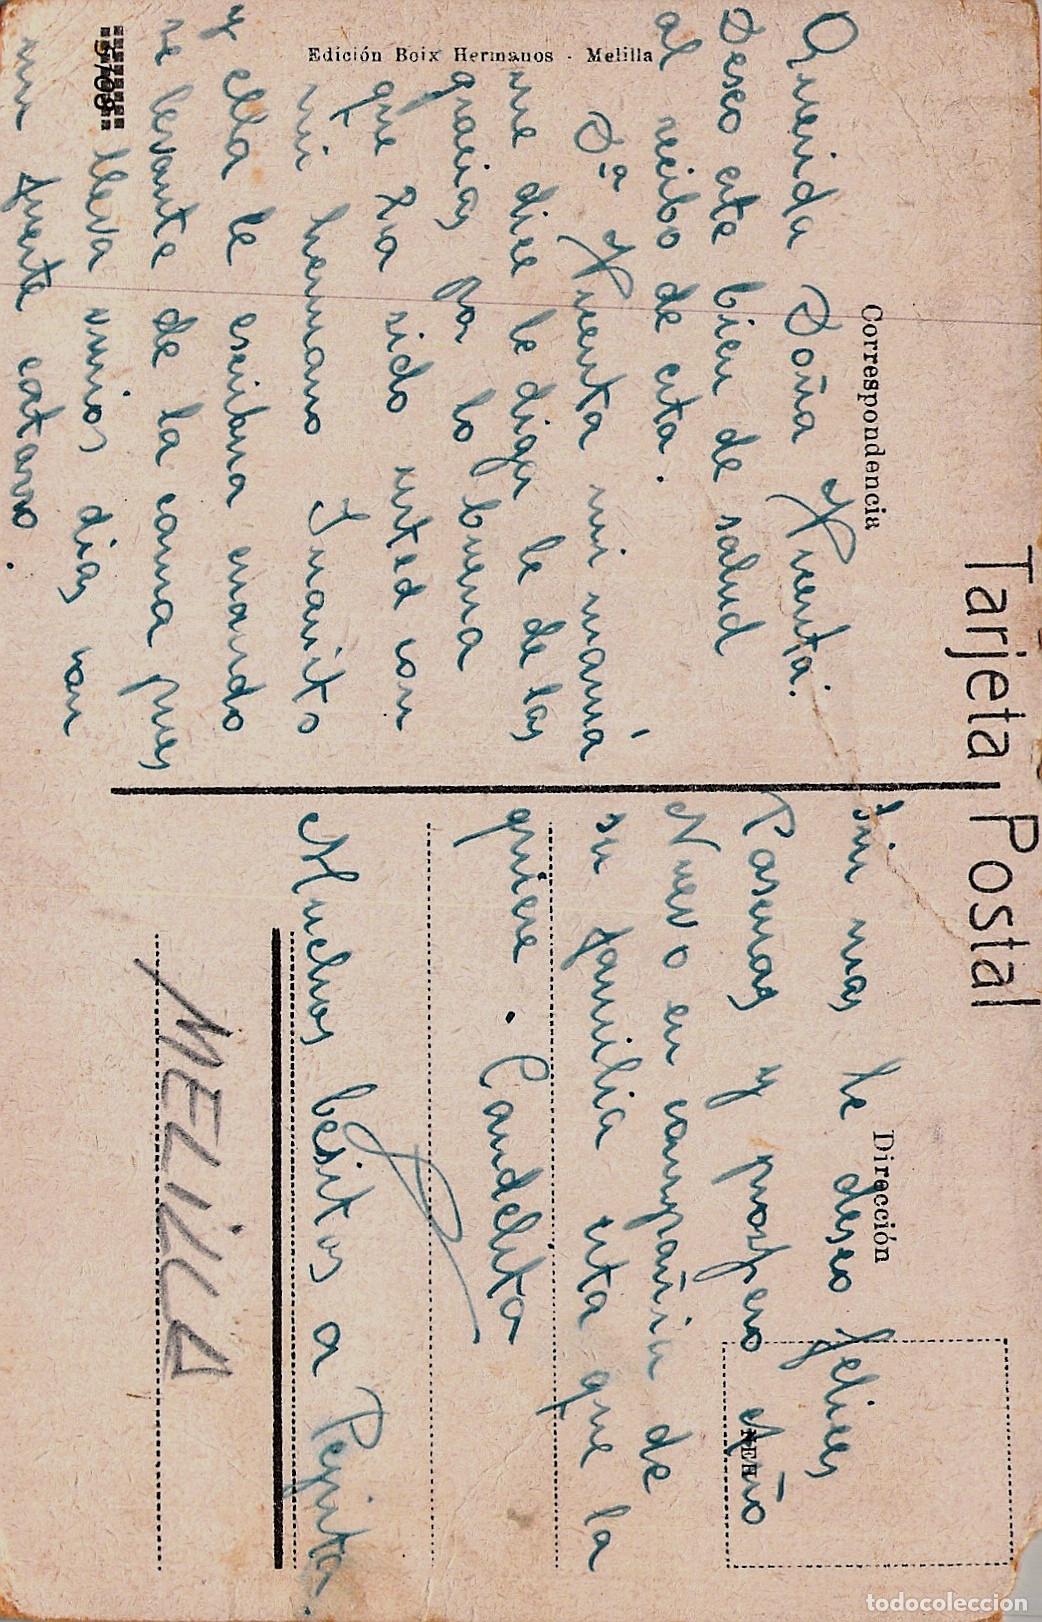 Tarjeta Postal
Correspondencia
Querida Doña Huerta:
Deseo este bien de salud
al recibo de esta.
Dª Huerta mi mamá
me dice le diga le de las
gracias por lo buena
que ha sido usted con
mi hermano Juanito
y ella le escribira cuando
se levante de la cama pues
lleva unios dias con
un fuerte catarro.
Edición Boix Hermanos - Melilla
Dirección
Sin mas le deseo felices
Pascuas y prospero Año
Nuevo en compañia de
su familia esta que la
quiere. Candelita
Muchos besitos a Pepita.
MELILLA
todocoleccion